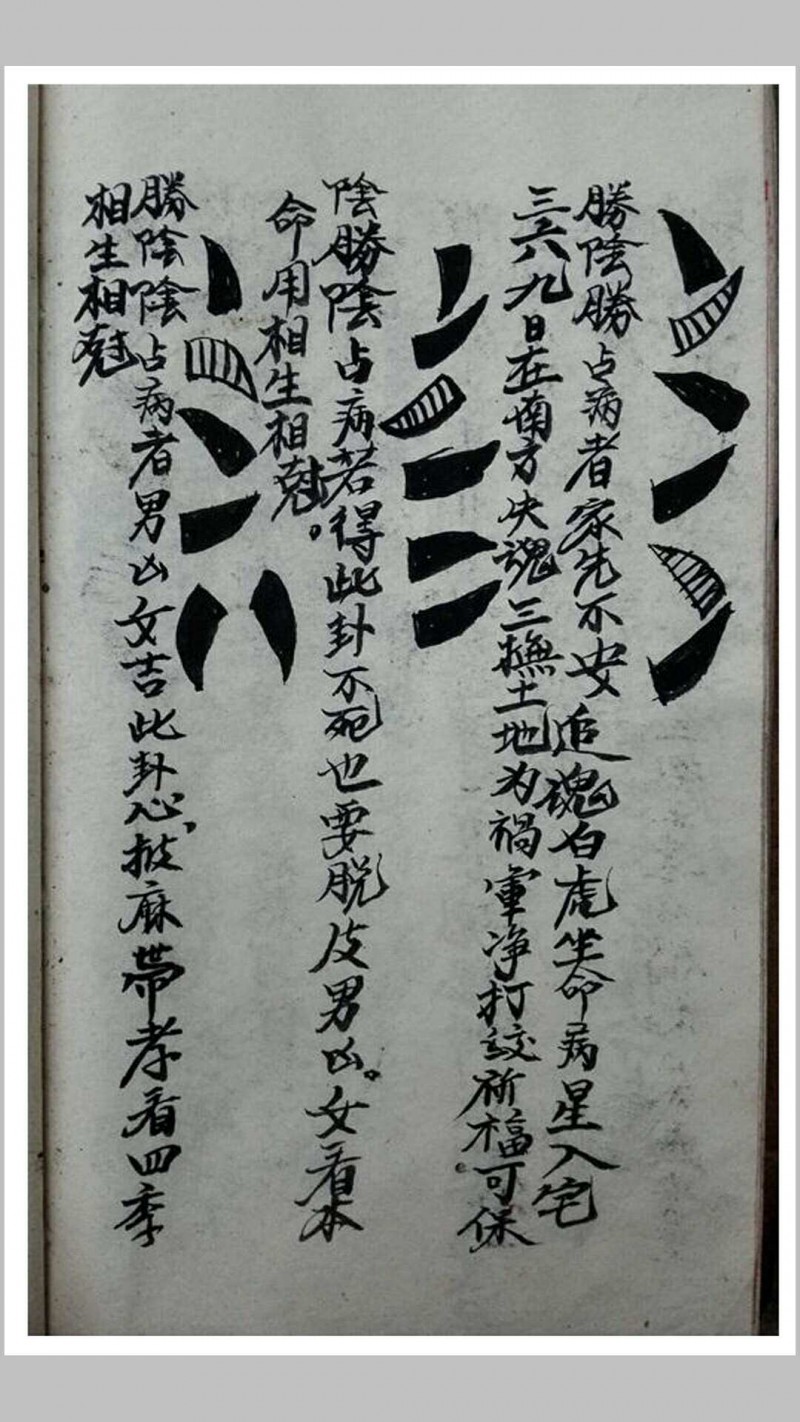 勝陰勝占病者家先不安追魂白虎坐命病星入宅
三六九日在南方失魂三撫土地为禍寉净打䛢祈福可保
陰勝陰占病若得此卦不死也要脱皮男凶。女看本
命用相生相尅。
勝陰陰占病者男凶女吉此卦心披麻带孝看四季
相生相尅